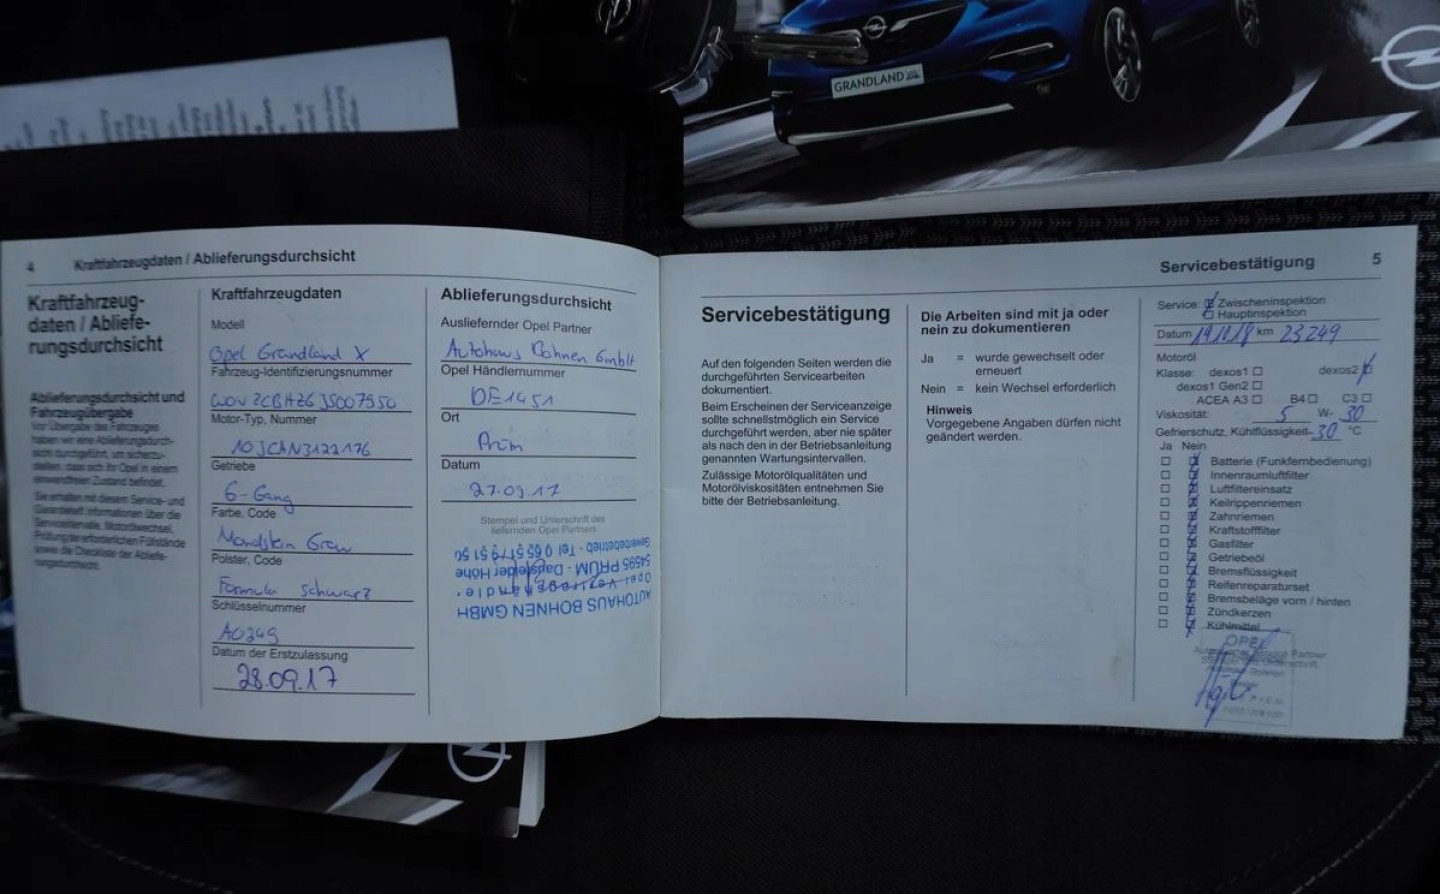 GRANDLAND X
4 Kraftfahrzeugdaten / Ablieferungsdurchsicht
Kraftfahrzeug-
daten / Abliefe-
rungsdurchsicht
Ablieferungsdurchsicht und
Fahrzeugübergabe
Vor Übergabe des Fahrzeuges
haben wir eine Ablieferungsdurch-
sicht durchgeführt, um sicherzu-
stellen, dass sich Ihr Opel in einem
einwandfreien Zustand befindet.
Sie erhalten mit diesem Service- und
Garantieheft Informationen über die
Serviceintervalle, Motorölwechsel,
Prüfung der erforderlichen Füllstände
sowie die Checkliste der Abliefe-
rungsdurchsicht.
Kraftfahrzeugdaten
Modell
Opel Grandland X
Fahrzeug-Identifizierungsnummer
Motor-Typ, Nummer
10JCAN3122176
Getriebe
6-Gang
Farbe, Code
Mondstein Grau
Polster, Code
Formula schwarz
Schlüsselnummer
A0349
Datum der Erstzulassung
28.09.17
Ablieferungsdurchsicht
Ausliefernder Opel Partner
Autohaus Bohnen GmbH
Opel Händlernummer
DE1451
Ort
Prüm
Datum
27.09.17
Stempel und Unterschrift des
liefernden Opel Partners
AUTOHAUS BOHNEN GMBH
Opel Vertragshändler
54595 PRÜM - Dausfelder Höhe
Gewerbegebiet - Tel.
Servicebestätigung 5
Servicebestätigung
Auf den folgenden Seiten werden die
durchgeführten Servicearbeiten
dokumentiert.
Beim Erscheinen der Serviceanzeige
sollte schnellstmöglich ein Service
durchgeführt werden, aber nie später
als nach den in der Betriebsanleitung
genannten Wartungsintervallen.
Zulässige Motorölqualitäten und
Motorölviskositäten entnehmen Sie
bitte der Betriebsanleitung.
Die Arbeiten sind mit ja oder
nein zu dokumentieren
Ja = wurde gewechselt oder
erneuert
Nein = kein Wechsel erforderlich
Hinweis
Vorgegebene Angaben dürfen nicht
geändert werden.
Service: Zwischeninspektion
Hauptinspektion
Datum 19.10.18 km 23249
Motoröl
Klasse: dexos1 dexos2
dexos1 Gen2
ACEA A3 B4 C3
Viskosität: 5 W- 30
Gefrierschutz, Kühlflüssigkeit- 30 °C
Ja Nein
Batterie (Funkfernbedienung)
Innenraumluftfilter
Luftfiltereinsatz
Keilrippenriemen
Zahnriemen
Kraftstofffilter
Gasfilter
Getriebeöl
Bremsflüssigkeit
Reifenreparaturset
Bremsbeläge vorn / hinten
Zündkerzen
Kühlmittel
OPEL